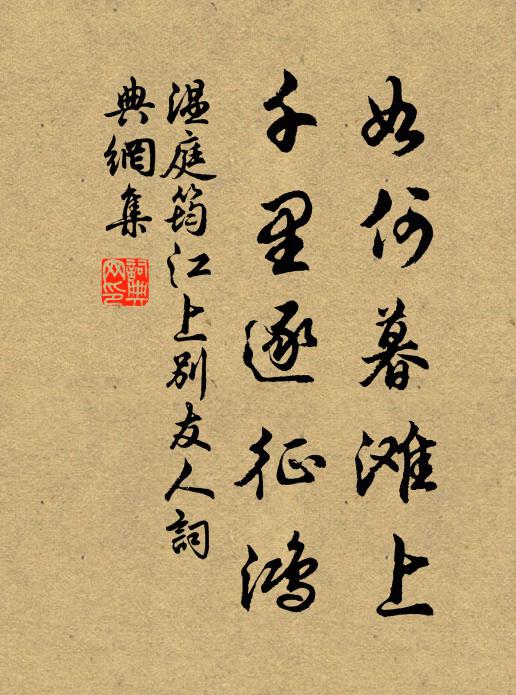 如何暮滩上
千里逐征鸿
温庭筠江上别友人詞
典網集
詞典
网印